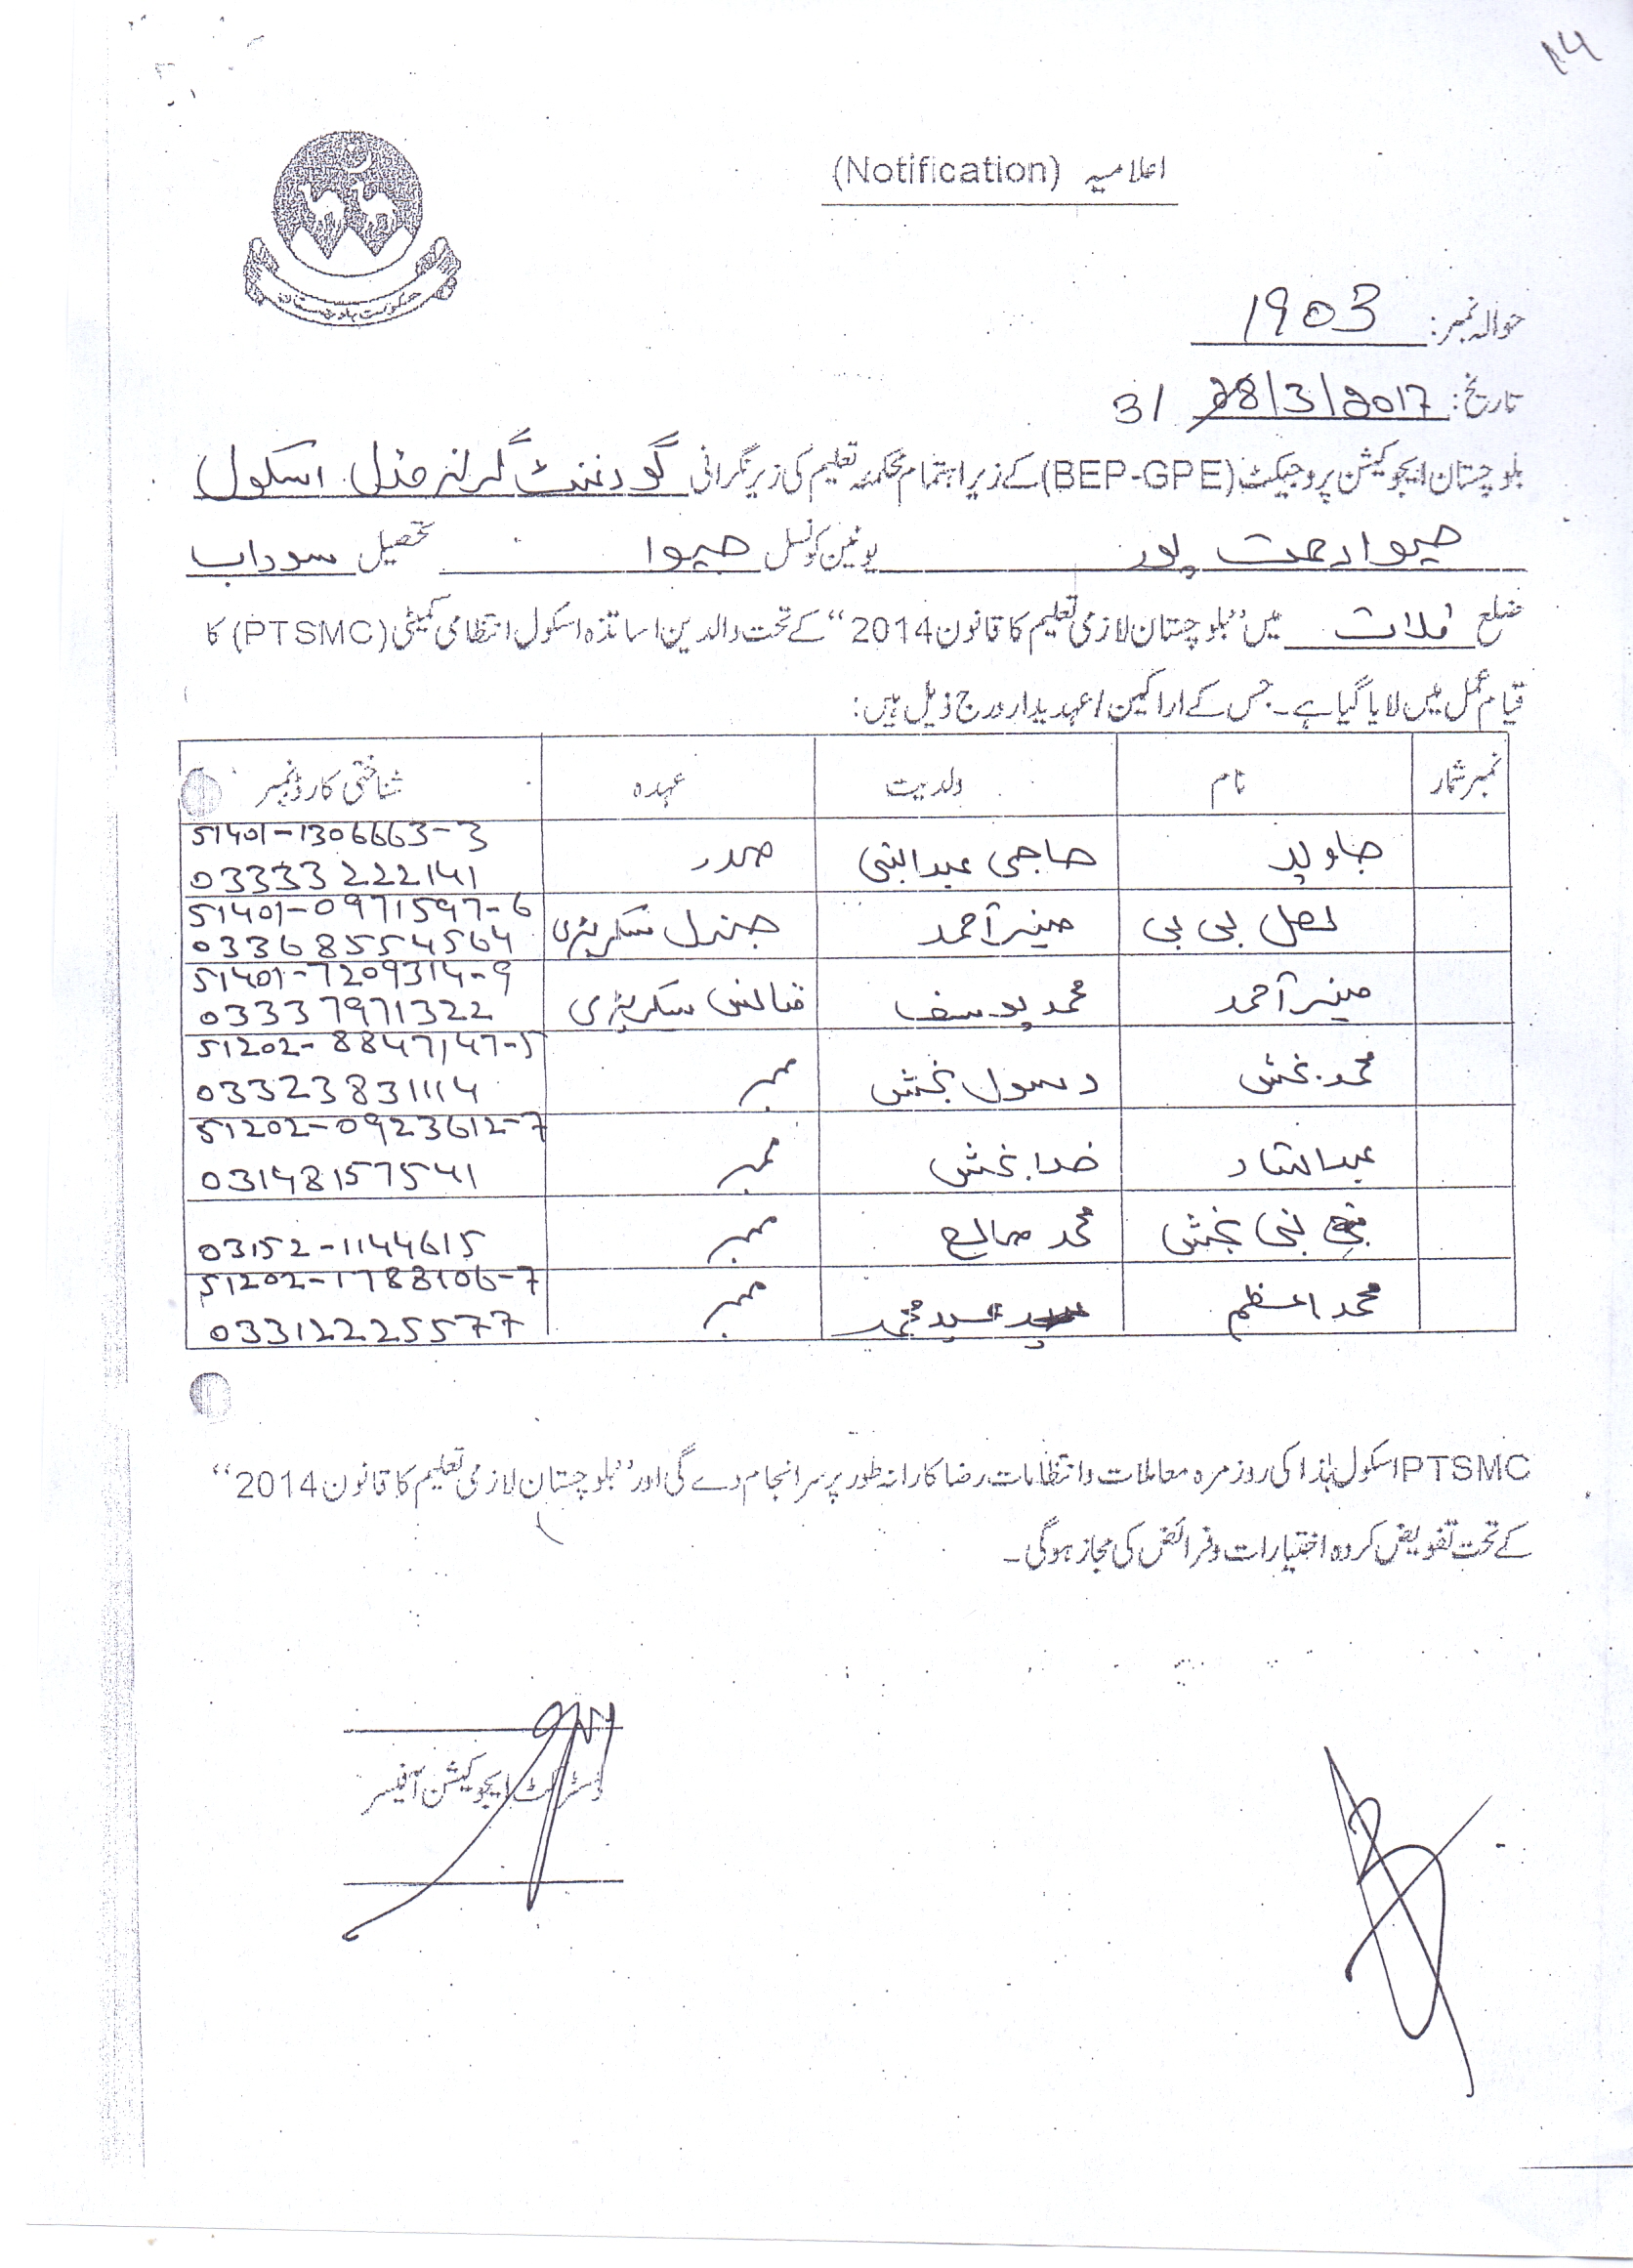 14
اعلامیہ (Notification)
حکومت بلوچستان
حوالہ نمبر: 1903
تاریخ: 28/3/2017 31
بلوچستان ایجوکیشن پروجیکٹ (BEP-GPE) کے زیر اہتمام محکمہ تعلیم کی زیر نگرانی گورنمنٹ گرلز مڈل اسکول
جیوا رحمت پور یونین کونسل جیوا تحصیل سوراب
ضلع قلات میں ”بلوچستان لازمی تعلیم کا قانون 2014“ کے تحت والدین اساتذہ اسکول انتظامی کمیٹی (PTSMC) کا
قیام عمل میں لایا گیا ہے۔ جس کے اراکین / عہدیدار درج ذیل ہیں:
نمبر شمار نام ولدیت عہدہ شناختی کارڈ نمبر
جاوید حاجی عبدالنبی صدر 51401-1306663-3
03333222141
لعل بی بی منیر آحمد جنرل سکریٹری 51401-0971597-6
03368554564
منیر آحمد محمد یوسف فنانس سکریٹری 51401-7209314-9
03337971322
محمد بخش رسول بخش ممبر 51202-8847147-5
03323831114
عبدالستار خدا بخش ممبر 51202-0923612-7
03148157541
نبی بخش محمد صالح ممبر 03152-1144615
محمد اعظم سید محمد ممبر 51202-1788106-7
03312225577
PTSMC اسکول ہٰذا کی روزمرہ معاملات و انتظامات رضاکارانہ طور پر سرانجام دے گی اور ”بلوچستان لازمی تعلیم کا قانون 2014“
کے تحت تفویض کردہ اختیارات و فرائض کی مجاز ہوگی۔
ڈسٹرکٹ ایجوکیشن آفیسر